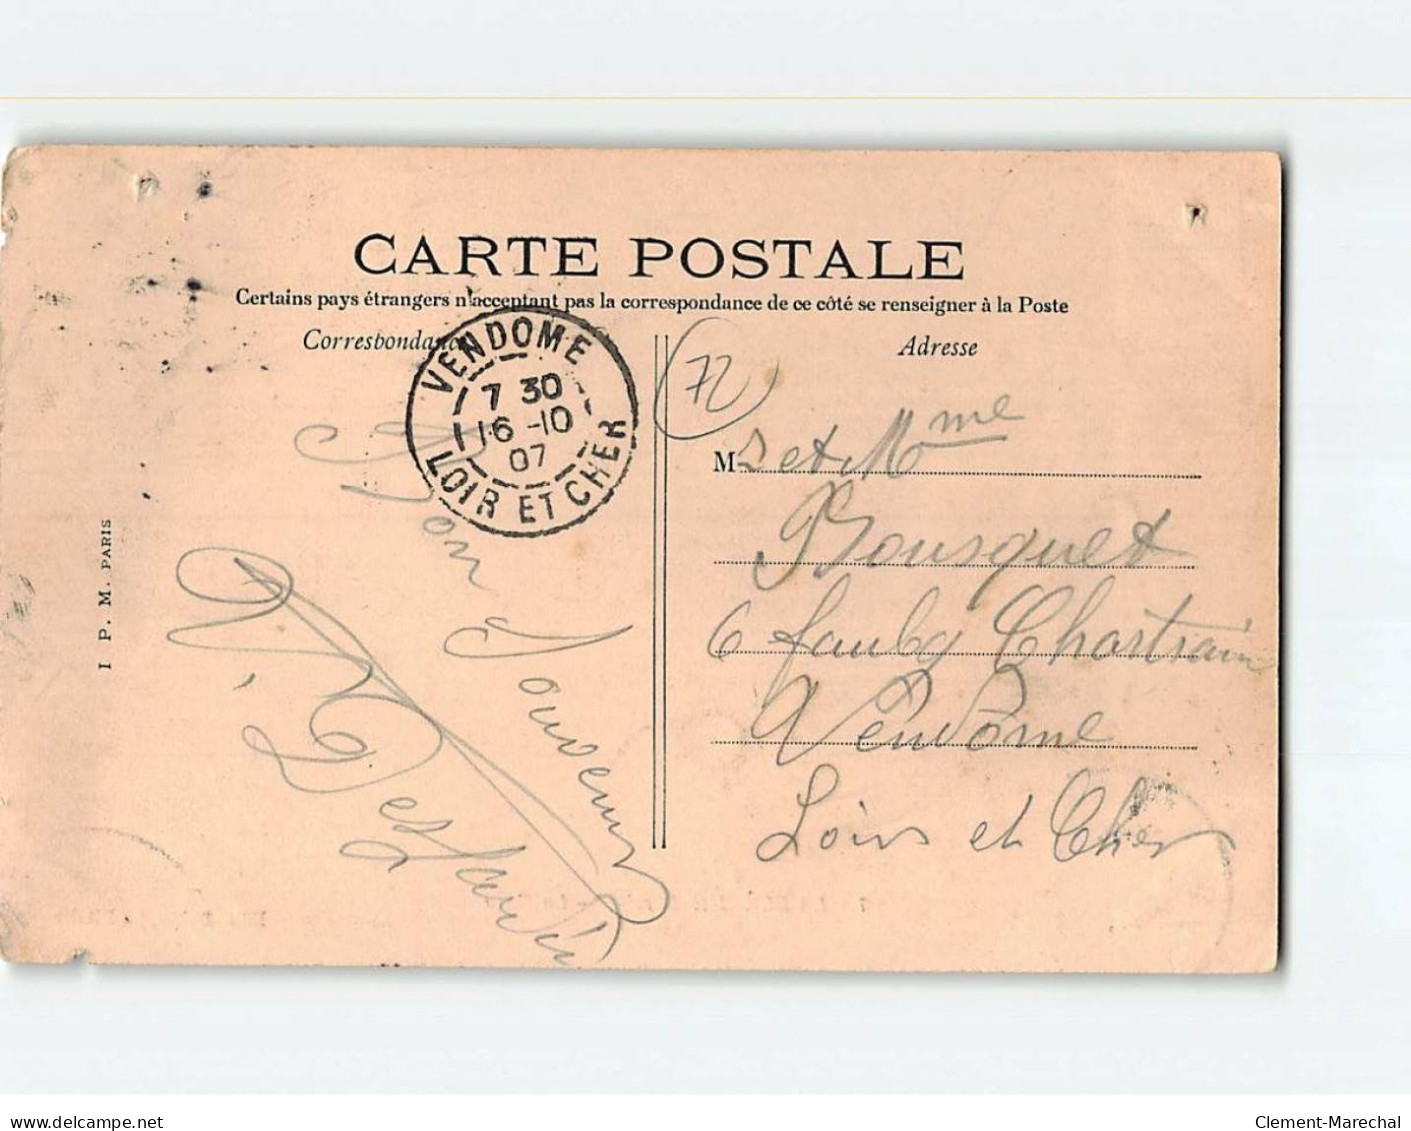 CARTE POSTALE
Certains pays étrangers n'acceptant pas la correspondance de ce côté se renseigner à la Poste
Correspondance
Adresse
VENDOME
7 30
16 -10
07
LOIR ET CHER
72
Bon Souvenir
I P. M. PARIS
M et Mme
Bousquet
6 faubg Chartrain
Vendome
Loir et Cher
www.delcampe.net
Clement-Marechal